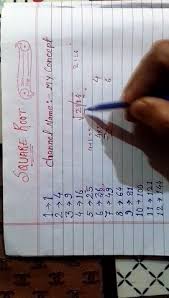 SQUARE ROOT
Channel Name:- MY Concept
1→1
2→4
3→9
4→16
5→25
6→36
7→49
8→64
9→81
10→100
11→121
12→144
4
6